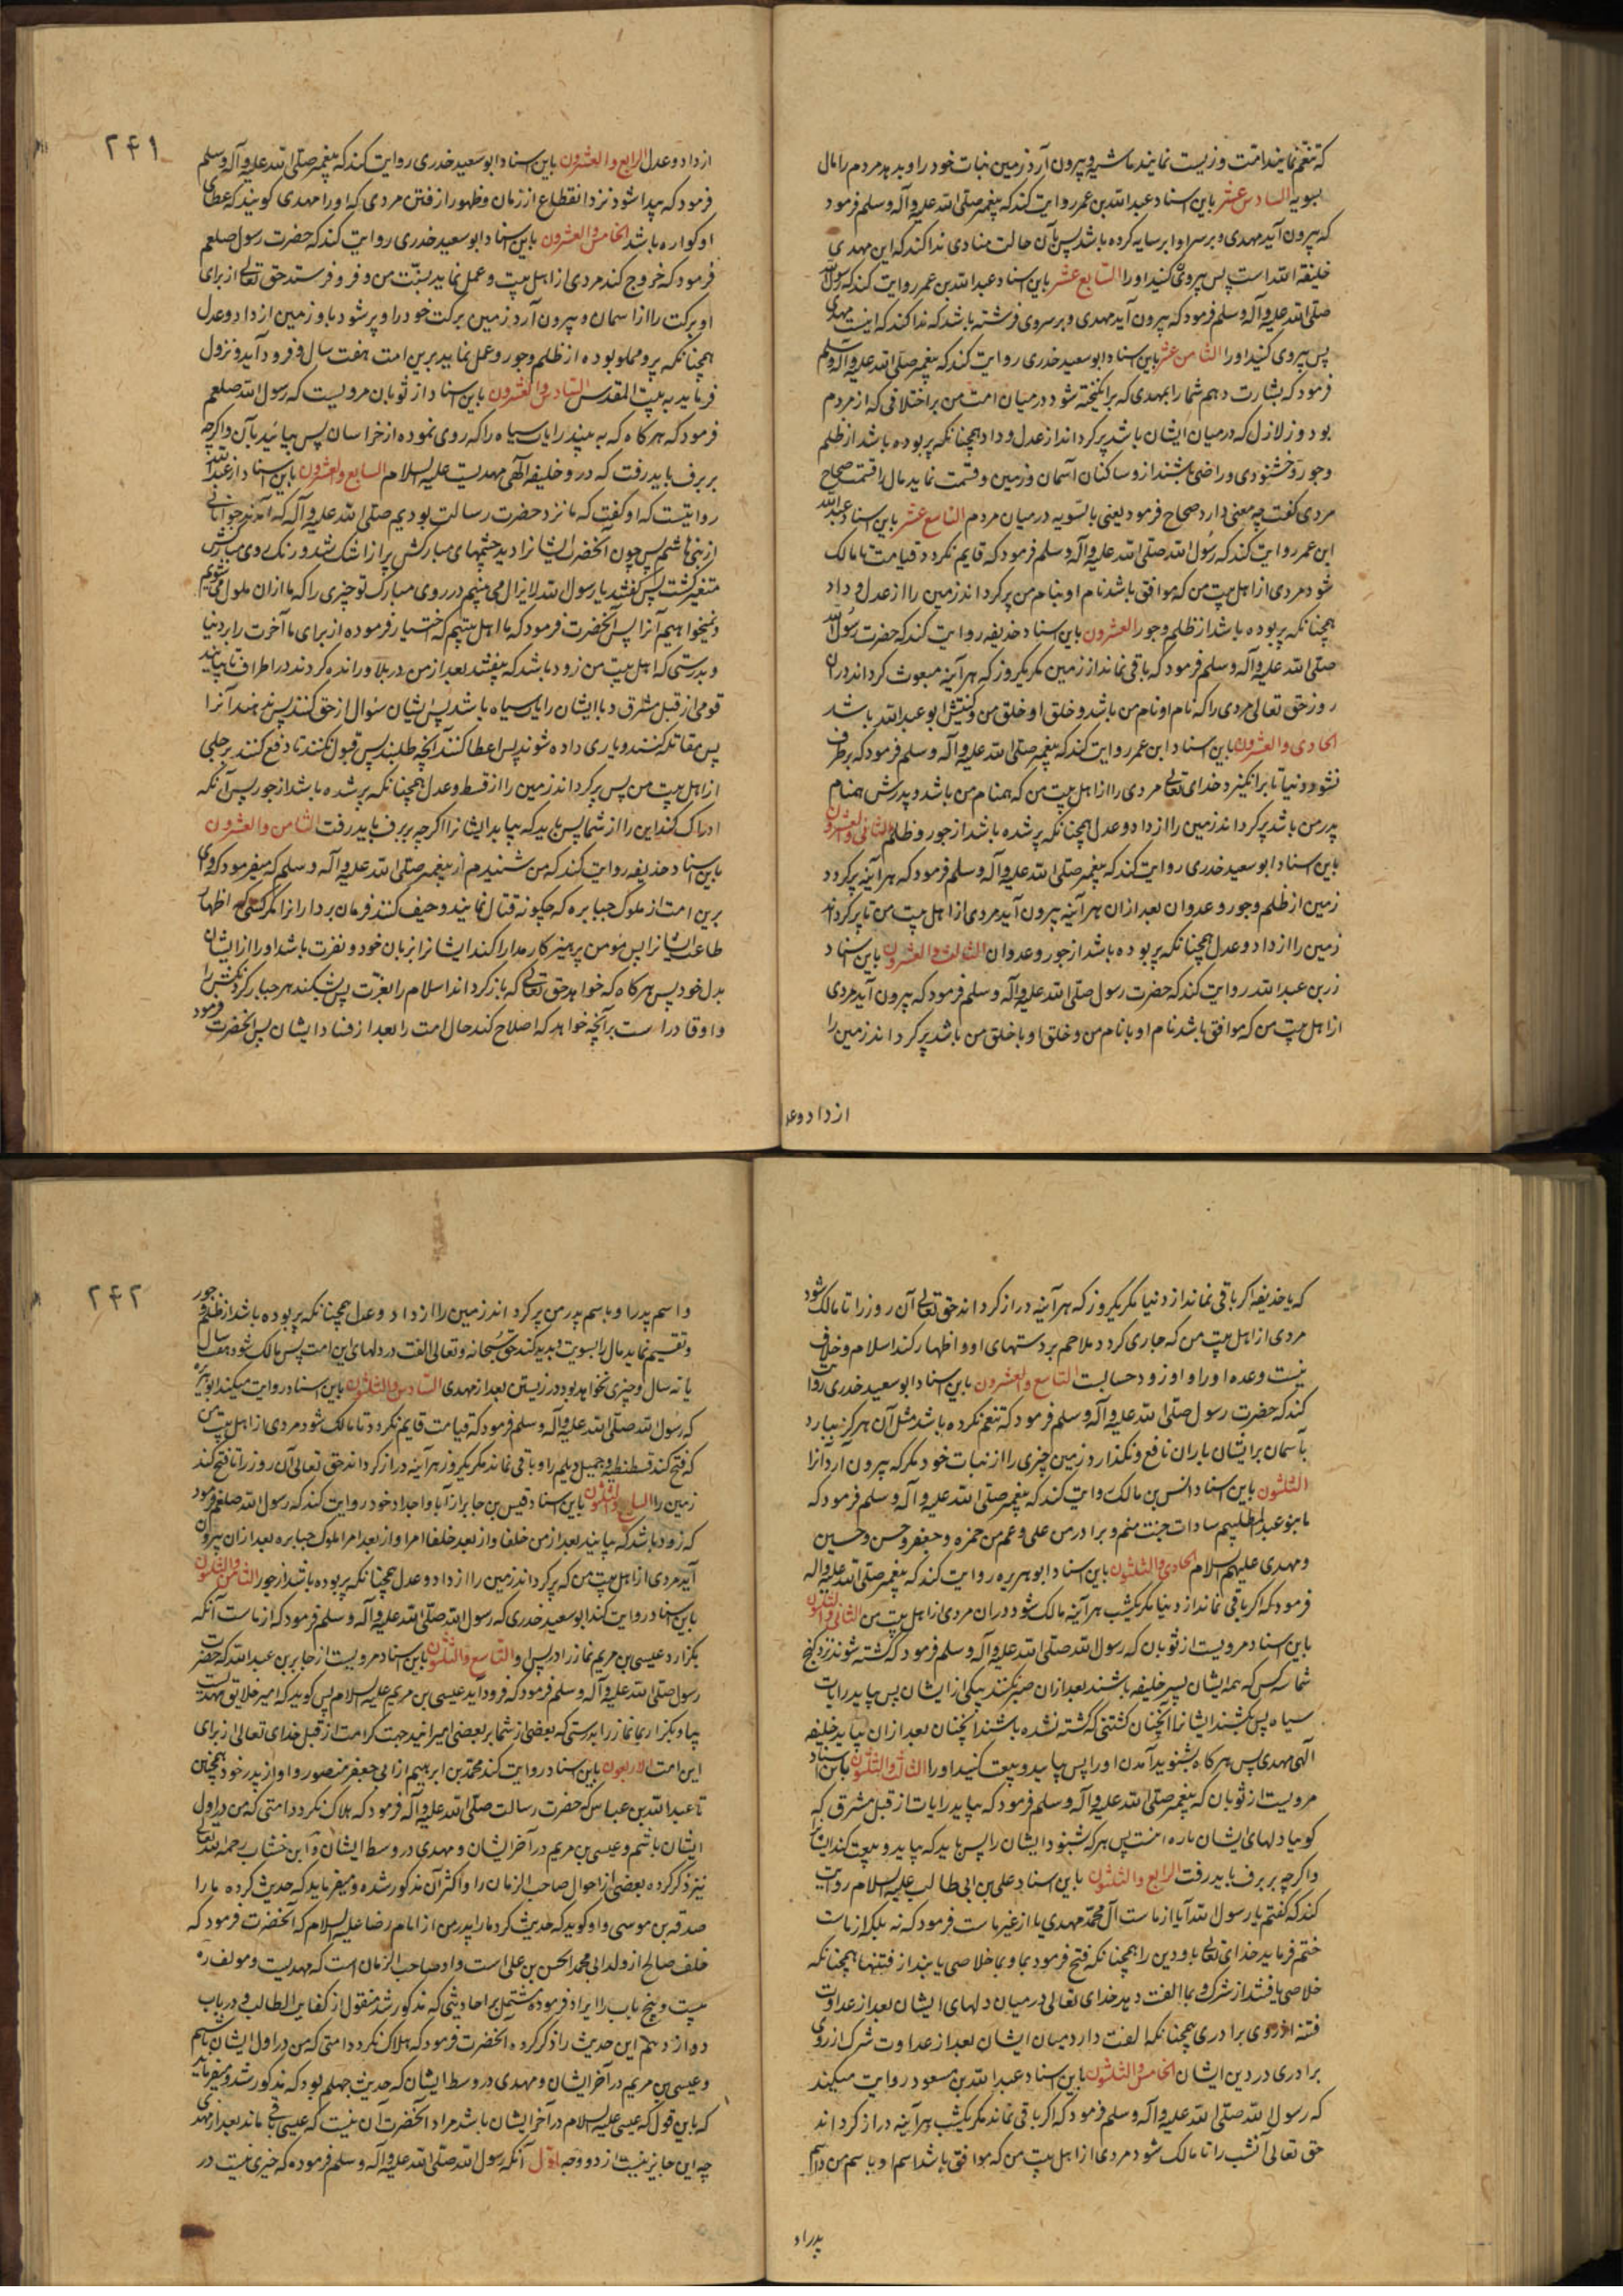 که تنعم نمایند امت و زیست نمایند ماشیه و بیرون آرد زمین نبات خود را و بدهد مردم را مال
بسویه السادس عشر باین اسناد عبدالله بن عمر روایت کند که پیغمبر صلی الله علیه وآله وسلم فرمود
که بیرون آید مهدی و بر سر او ابر سایه کرده باشد پس بآن حالت منادی ندا کند که این مهدی
خلیفة الله است پس پیروی کنید او را السابع عشر باین اسناد عبدالله بن عمر روایت کند که رسول الله
صلی الله علیه وآله وسلم فرمود که بیرون آید مهدی و بر سر وی فرشته باشد که ندا کند که اینست مهدی
پس پیروی کنید او را الثامن عشر باین اسناد ابو سعید خدری روایت کند که پیغمبر صلی الله علیه وآله وسلم
فرمود که بشارت دهم شما را بمهدی که برانگیخته شود در میان امت من بر اختلافی که از مردم
بود و زلازل که در میان ایشان باشد پر گرداند از عدل و داد همچنانکه پر بوده باشد از ظلم
و جور و خشنودی و راضی باشند ازو ساکنان آسمان و زمین و قسمت نماید مال را قسمت صحاح
مردی گفت چه معنی دارد صحاح فرمود یعنی بالسویه در میان مردم التاسع عشر باین اسناد عبدالله
ابن عمر روایت کند که رسول الله صلی الله علیه وآله وسلم فرمود که قایم نگردد قیامت تا مالک
شود مردی از اهل بیت من که موافق باشد نام او بنام من پر گرداند زمین را از عدل و داد
همچنانکه پر بوده باشد از ظلم و جور العشرون باین اسناد حذیفه روایت کند که حضرت رسول الله
صلی الله علیه وآله وسلم فرمود که باقی نماند از زمین مگر یکروز که هر آینه مبعوث گرداند در آن
روز حق تعالی مردی را که نام او نام من باشد و خلق او خلق من و کنیتش ابو عبدالله باشد
الحادی والعشرون باین اسناد ابن عمر روایت کند که پیغمبر صلی الله علیه وآله وسلم فرمود که برطرف
نشود دنیا تا برانگیزد خدای تعالی مردی را از اهل بیت من که همنام من باشد و پدرش همنام
پدر من باشد پر گرداند زمین را از داد و عدل همچنانکه پر شده باشد از جور و ظلم الثانی والعشرون
باین اسناد ابو سعید خدری روایت کند که پیغمبر صلی الله علیه وآله وسلم فرمود که هر آینه پر گردد
زمین از ظلم و جور و عدوان بعد از ان هر آینه بیرون آید مردی از اهل بیت من تا پر گرداند
زمین را از داد و عدل همچنانکه پر بوده باشد از جور و عدوان الثالث والعشرون باین اسناد
زر بن عبدالله روایت کند که حضرت رسول صلی الله علیه وآله وسلم فرمود که بیرون آید مردی
از اهل بیت من که موافق باشد نام او با نام من و خلق او با خلق من باشد پر گرداند زمین را
از داد و عد
۲۴۱
از داد و عدل الرابع والعشرون باین اسناد ابو سعید خدری روایت کند که پیغمبر صلی الله علیه وآله وسلم
فرمود که پیدا شود نزد انقطاع از زمان و ظهور از فتن مردی که او را مهدی گویند که عطای
او گواره باشد الخامس والعشرون باین اسناد ابو سعید خدری روایت کند که حضرت رسول صلعم
فرمود که خروج کند مردی از اهل بیت و عمل نماید بسنّت من و فرو فرستد حق تعالی از برای
او برکت را از آسمان و بیرون آرد زمین برکت خود را و پر شود باو زمین از داد و عدل
همچنانکه پر و مملو بوده از ظلم و جور و عمل نماید برین امت هفت سال و فرود آید و نزول
فرماید به بیت المقدس السادس والعشرون باین اسناد از ثوبان مرویست که رسول الله صلعم
فرمود که هر گاه که به بیند رایات سیاه را که روی نموده از خراسان پس بیائید بآن و اگرچه
بر برف باید رفت که در و خلیفه الهی مهدیست علیه السلام السابع والعشرون باین اسناد از عبدالله
روایتیست که او گفت که ما نزد حضرت رسالت بودیم صلی الله علیه وآله که آمدند جوانانی
از بنی هاشم پس چون آنحضرت ایشانرا دید چشمهای مبارکش پر از اشک شد و رنگ روی مبارکش
متغیر گشت پس گفتند یا رسول الله لایزال می بینیم در روی مبارک تو چیزی را که ما ازان ملول می شویم
و نمیخواهیم آنرا پس آنحضرت فرمود که ما اهل بیتیم که اختیار فرموده از برای ما آخرت را بر دنیا
و بدرستی که اهل بیت من زود باشد که بیفتند بعد از من در بلا و رانده گردند در اطراف تا بیایند
قومی از قبل مشرق و با ایشان رایات سیاه باشد پس ایشان سؤال از حق کنند پس ندهند آنرا
پس مقاتله کنند و یاری داده شوند پس اعطا کنند آنچه طلبند پس قبول نکنند تا دفع کنند برجلی
از اهل بیت من پس پر گرداند زمین را از قسط و عدل همچنانکه پر شده باشد از جور پس آنکه
ادراک کند این را از شما پس باید که بیاید ایشانرا اگرچه بر برف باید رفت الثامن والعشرون
باین اسناد حذیفه روایت کند که من شنیدم از پیغمبر صلی الله علیه وآله وسلم که میفرمود که وای
برین امت از ملوک جبابره که چگونه قتال نمایند و حیف کنند فرمان بردارانرا مگر کسی که اظهار
طاعت ایشانرا پس مؤمن پرهیزکار مدارا کند ایشانرا بزبان خود و نفرت باشد او را از ایشان
بدل خود پس هر گاه که خواهد حق تعالی که باز گرداند اسلام را بعزت پس بشکند هر جبار گردنکش را
و او قادر است بر آنچه خواهد که اصلاح کند حال امت را بعد از فساد ایشان پس آنحضرت فرمود
که یا حذیفه اگر باقی نماند از دنیا مگر یکروز که هر آینه دراز گرداند حق تعالی آن روز را تا مالک شود
مردی از اهل بیت من که جاری گردد ملاحم بر دستهای او و اظهار کند اسلام و خلاف
نیست وعده او را و او زود حسابست التاسع والعشرون باین اسناد ابو سعید خدری روایت
کند که حضرت رسول صلی الله علیه وآله وسلم فرمود که تنعم نکرده باشد مثل آن هرگز ببارد
بآسمان بر ایشان باران نافع و نگذارد زمین چیزی را از نبات خود مگر که بیرون آرد آنرا
الثلثون باین اسناد انس بن مالک روایت کند که پیغمبر صلی الله علیه وآله وسلم فرمود که
ما بنو عبدالمطلبیم سادات جنت منم و برادر من علی و عم من حمزه و جعفر و حسن و حسین
و مهدی علیهم السلام الحادی والثلثون باین اسناد ابو هریره روایت کند که پیغمبر صلی الله علیه وآله
فرمود که اگر باقی نماند از دنیا مگر یکشب هر آینه مالک شود در ان مردی از اهل بیت من الثانی والثلثون
باین اسناد مرویست از ثوبان که رسول الله صلی الله علیه وآله وسلم فرمود که کشته شوند نزد گنج
شما سه کس که همه ایشان پسر خلیفه باشند بعد از ان صبر نکنند بیکی از ایشان پس بیاید رایات
سیاه پس بکشند ایشانرا آنچنان کشتنی که کشته نشده باشند آنچنان بعد از ان بیاید خلیفه
الهی مهدی پس هر گاه بشنوید آمدن او را پس بیایید و بیعت کنید او را الثالث والثلثون باین اسناد
مرویست از ثوبان که پیغمبر صلی الله علیه وآله وسلم فرمود که بیاید رایات از قبل مشرق که
گوییا دلهای ایشان پاره آهنست پس هر که شنود ایشان را پس باید که بیاید و بیعت کند ایشانرا
و اگرچه بر برف باید رفت الرابع والثلثون باین اسناد علی بن ابی طالب علیه السلام روایت
کند که گفتم یا رسول الله آیا از ماست آل محمد مهدی یا از غیر ماست فرمود که نه بلکه از ماست
ختم فرماید خدای تعالی باو دین را همچنانکه فتح فرمود بما و بما خلاصی یابند از فتنها همچنانکه
خلاصی یافتند از شرک و بما الفت دهد خدای تعالی در میان دلهای ایشان بعد از عداوت
فتنه از روی برادری همچنانکه الفت داد در میان ایشان بعد از عداوت شرک از روی
برادری در دین ایشان الخامس والثلثون باین اسناد عبدالله بن مسعود روایت میکند
که رسول الله صلی الله علیه وآله وسلم فرمود که اگر باقی نماند مگر یکشب هر آینه دراز گرداند
حق تعالی آنشب را تا مالک شود مردی از اهل بیت من که موافق باشد اسم او با سم من و اسم
پدر او
۲۴۲
و اسم پدر او باسم پدر من پر گرداند زمین را از داد و عدل همچنانکه پر بوده باشد از ظلم و جور
و تقسیم نماید مال را بسویت و پدید کند حق سبحانه و تعالی الفت در دلهای این امت پس مالک شود هفت سال
یا نه سال و چیزی نخواهد بود در زیستن بعد از مهدی السادس والثلثون باین اسناد روایت میکند ابو هریره
که رسول الله صلی الله علیه وآله وسلم فرمود که قیامت قایم نگردد تا مالک شود مردی از اهل بیت من
که فتح کند قسطنطنیه و جبل دیلم را و باقی نماند مگر یکروز هر آینه دراز گرداند حق تعالی آن روز را تا فتح کند
زمین را السابع والثلثون باین اسناد قیس بن جابر از آبا و اجداد خود روایت کند که رسول الله صلعم فرمود
که زود باشد که بیایند بعد از من خلفا و از بعد خلفا امرا و از بعد امرا ملوک جبابره بعد از ان بیرون
آید مردی از اهل بیت من که پر گرداند زمین را از داد و عدل همچنانکه پر بوده باشد از جور الثامن والثلثون
باین اسناد روایت کند ابو سعید خدری که رسول الله صلی الله علیه وآله وسلم فرمود که از ماست آنکه
بگزارد عیسی بن مریم نماز را در پس او التاسع والثلثون باین اسناد مرویست از جابر بن عبدالله که حضرت
رسول صلی الله علیه وآله وسلم فرمود که فرود آید عیسی بن مریم علیه السلام پس گوید که امیر خلایق مهدیست
بیا و بگزار بما نماز را بدرستی که بعضی از شما بر بعضی امیرانید جهت کرامت از قبل خدای تعالی از برای
این امت الاربعون باین اسناد روایت کند محمد بن ابرهیم از ابی جعفر منصور و او از پدر خود همچنین
تا عبدالله بن عباس که حضرت رسالت صلی الله علیه وآله فرمود که هلاک نگردد امتی که من در اول
ایشان باشم و عیسی بن مریم در آخر ایشان و مهدی در وسط ایشان و ابن خشاب رحمه الله تعالی
نیز ذکر کرده بعضی از احوال صاحب الزمان را و اکثر آن مذکور شده و میفرماید که حدیث کرده ما را
صدقه بن موسی و او گوید که حدیث کرد ما را پدر من از امام رضا علیه السلام که آنحضرت فرمود که
خلف صالح از ولد ابی محمد الحسن بن علی است و او صاحب الزمان است که مهدیست و مولف ره
بیست و پنج باب را ایراد فرموده مشتمل بر احادیثی که مذکور شد منقول از کفایة الطالب و در باب
دوازدهم این حدیث را ذکر کرده آنحضرت فرمود که هلاک نگردد امتی که من در اول ایشان باشم
و عیسی بن مریم در آخر ایشان و مهدی در وسط ایشان که حدیث چهلم بود که مذکور شد و میفرماید
که باین قول که عیسی علیه السلام در آخر ایشان باشد مراد آنحضرت آن نیست که عیسی باقی ماند بعد از مهدی
چه این جایز نیست از دو وجه اول آنکه رسول الله صلی الله علیه وآله وسلم فرموده که خیری نیست در